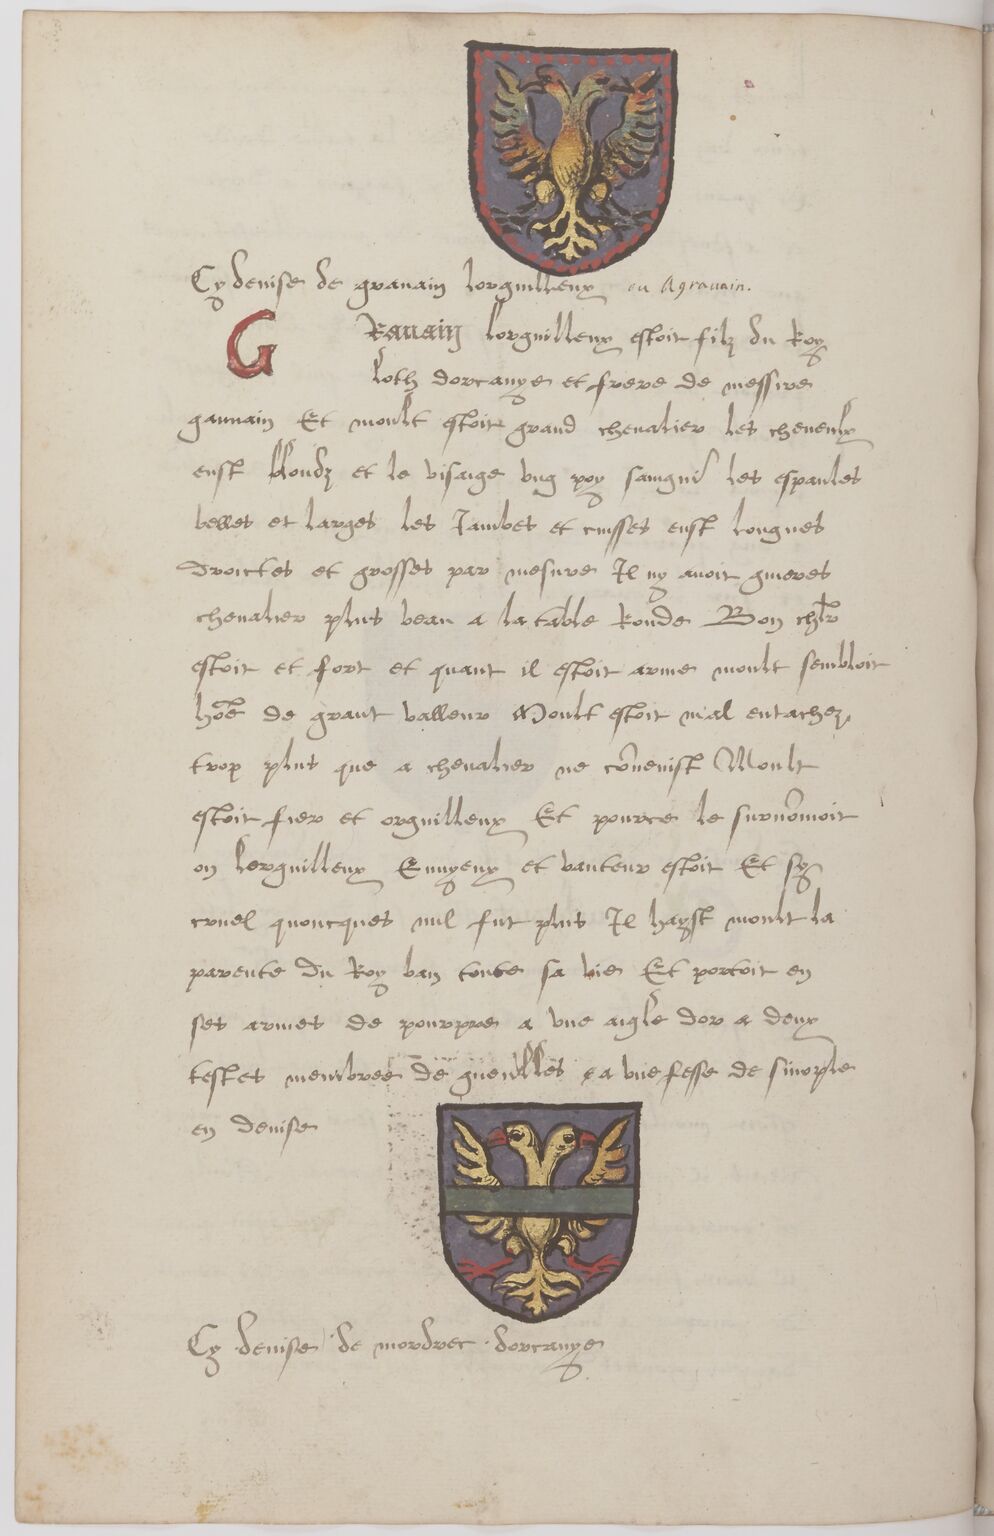 Cy deuise de grauain lorguilleux ou Agrauain.
GRauain lorguilleux estoit filz du Roy
loth dorcanye et frere de messire
gauuain Et moult estoit grand cheualier les cheueulx
eust blondz et le visaige ung poy sanguin les espaules
belles et larges les Jambes et cuisses eust longues
droictes et grosses par mesure Il ny auoit gueres
cheualier plus beau a la table Ronde Bon chlr
estoit et fort et quant il estoit arme moult sembloit
hōe de grant valleur Moult estoit mal entachez
trop plus que a cheualier ne cōuenist Moult
estoit fier et orguilleux Et pource le surnōmoit
on lorguilleux Enuyeux et vanteur estoit Et sy
cruel quoncques nul fut plus Il hayst moult la
parente du Roy ban toute sa vie Et portoit en
ses armes de pourpre a une aigle dor a deux
testes membree de gueulles a une fesse de sinople
en deuise
Cy deuise de mordrec dorcanye